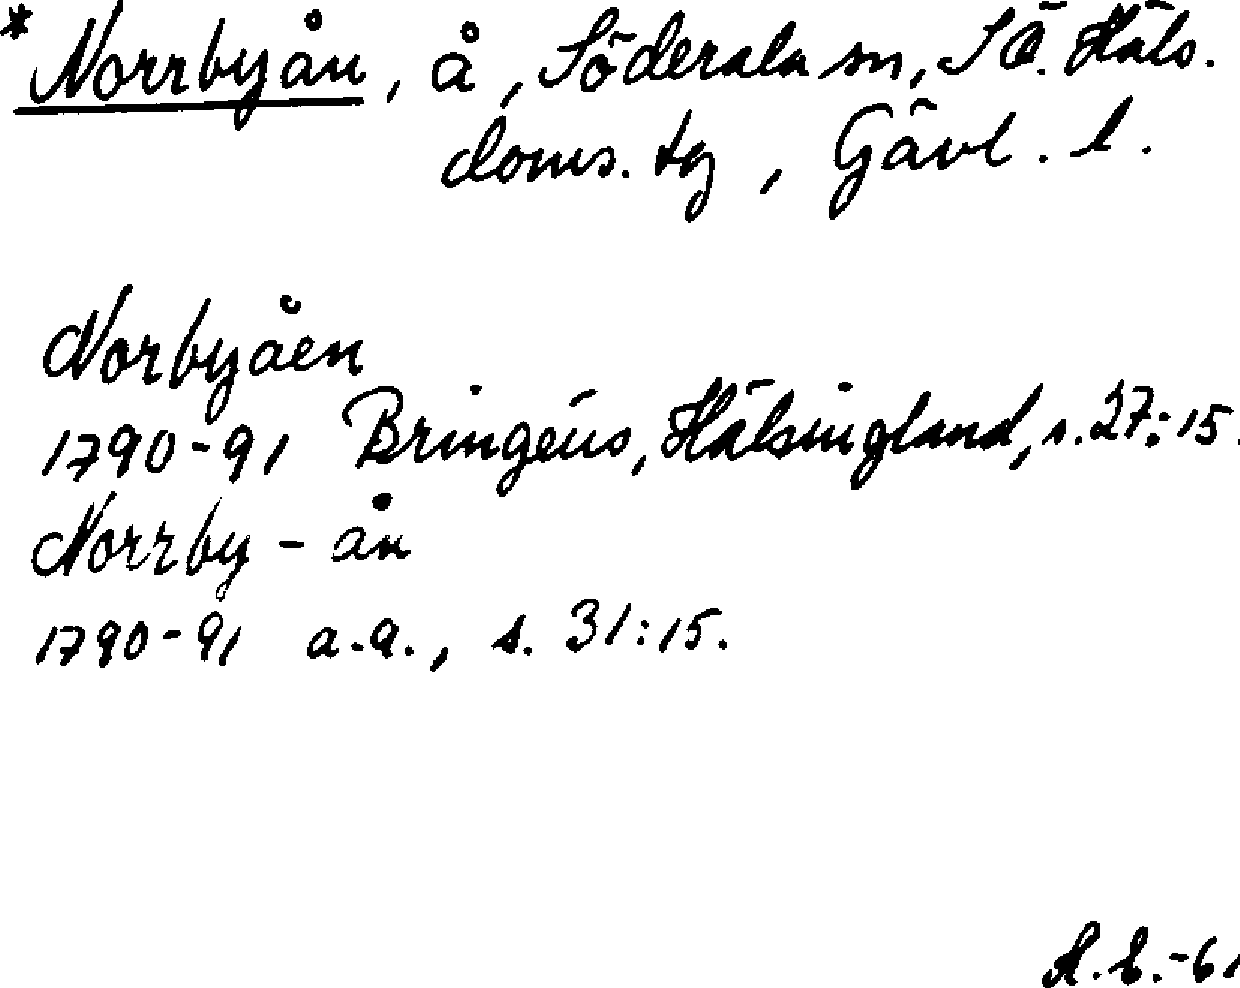 * Norrbyån, å, Söderala sn, S Ö. Häls.
doms. tg, Gävl. l.
Norbyåen
1790-91 Bringéus, Hälsingland, s. 27:15.
Norrby - ån
1790-91 a.a., s. 31:15.
-61